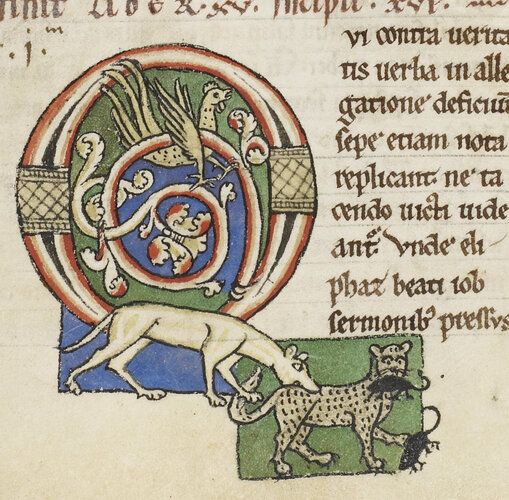 .xv. incipit .xvi.
ui contra uerita
tis uerba in alle
gatione deficiunt
sepe etiam nota
replicant. ne ta
cendo uicti uide
antᷣ. Vnde eli
phaz beati iob
sermonibꝰ pressus